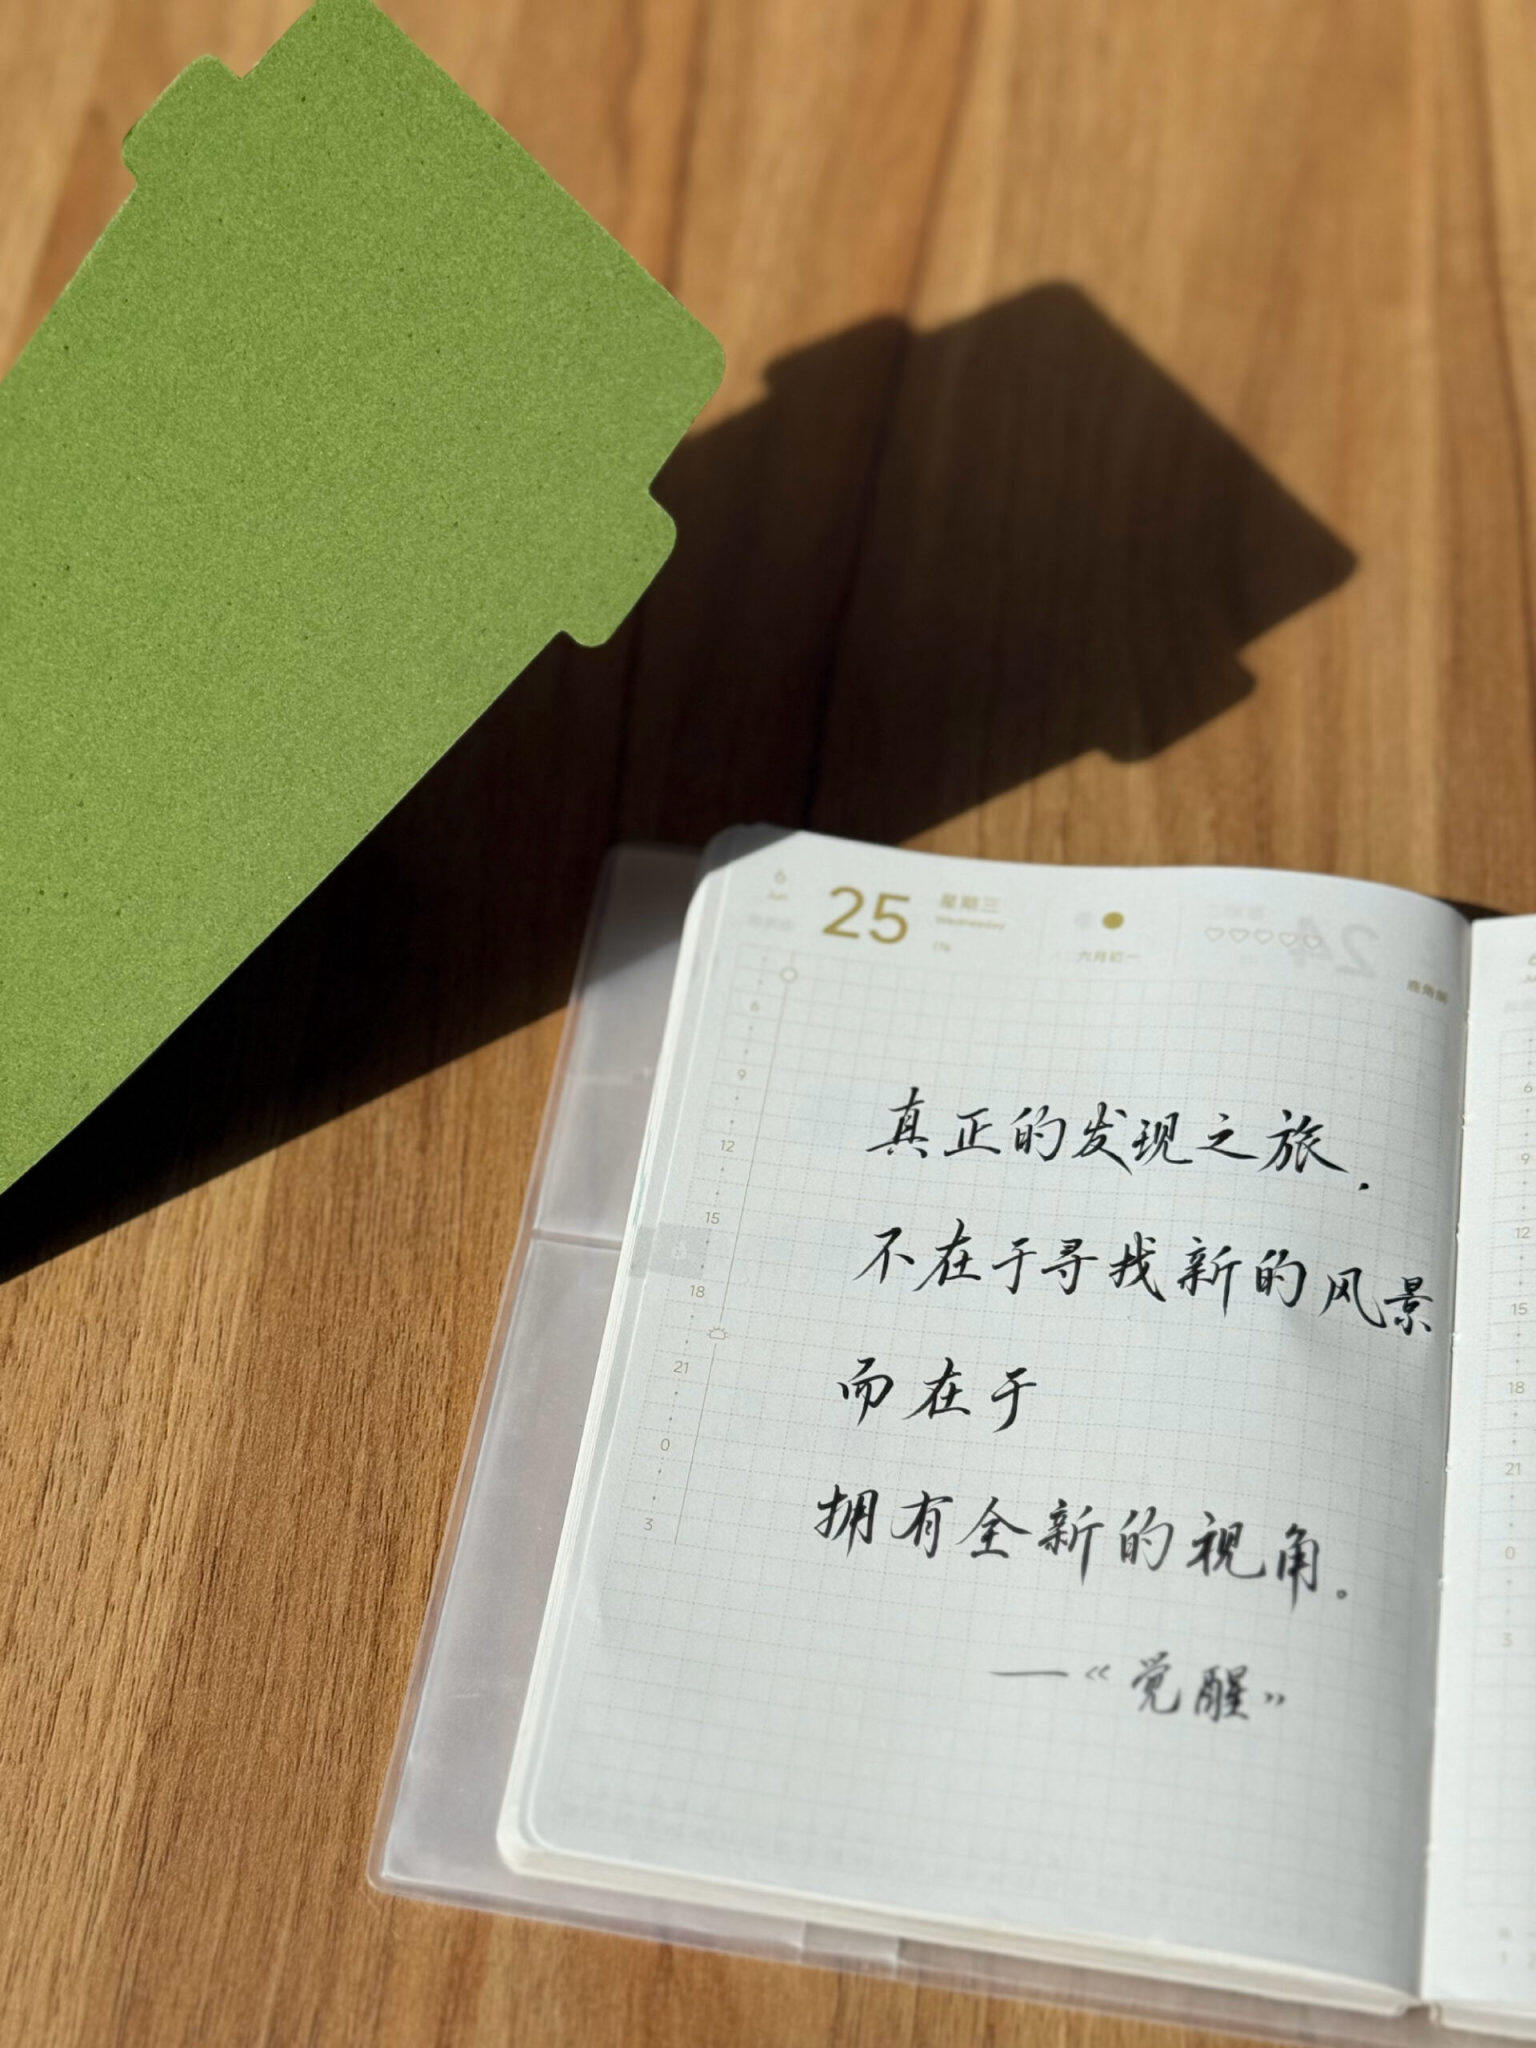 6
Jun
25
星期三
Wednesday
六月初一
鹿角帆
6
9
12
15
18
21
0
3
真正的发现之旅.
不在于寻找新的风景
而在于
拥有全新的视角。
—“觉醒”
6
9
12
15
18
21
0
3